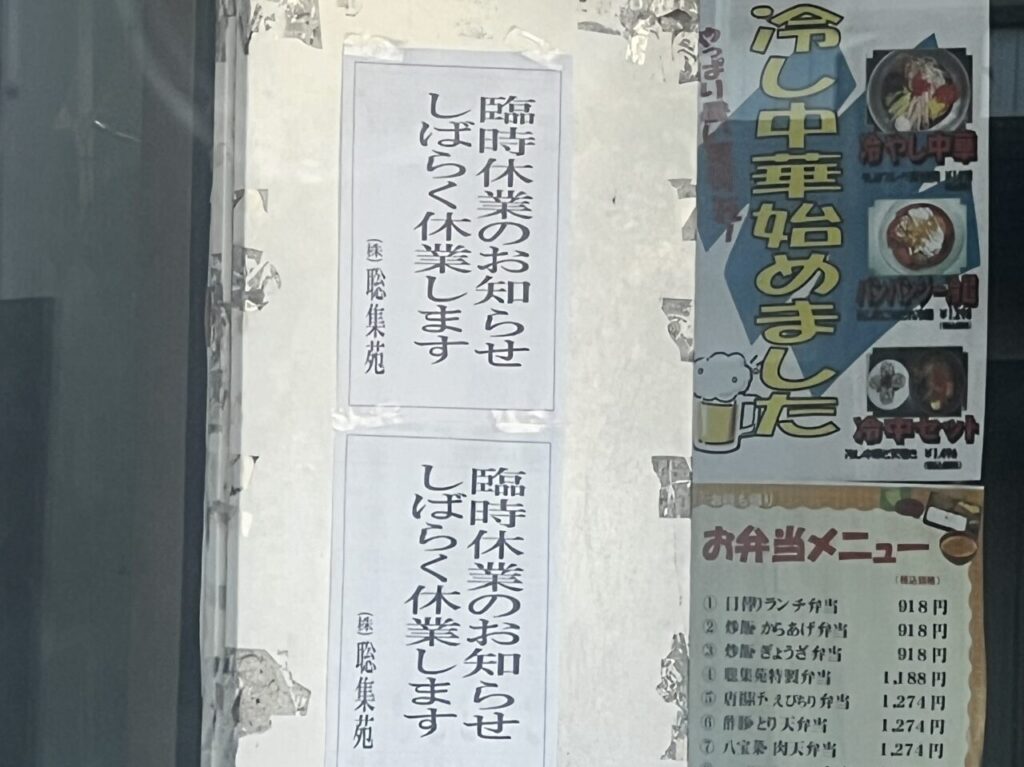 臨時休業のお知らせ
しばらく休業します
㈱ 聡集苑
臨時休業のお知らせ
しばらく休業します
㈱ 聡集苑
冷し中華始めました
冷やし中華
バンバンジー冷麺
冷中セット
¥1,496
お弁当メニュー
(税込価格)
① 日替りランチ弁当 918円
② 炒飯 からあげ弁当 918円
③ 炒飯 ぎょうざ弁当 918円
④ 聡集苑特製弁当 1,188円
⑤ 唐揚げ えびちり弁当 1,274円
⑥ 酢豚 とり天弁当 1,274円
⑦ 八宝菜 肉天弁当 1,274円